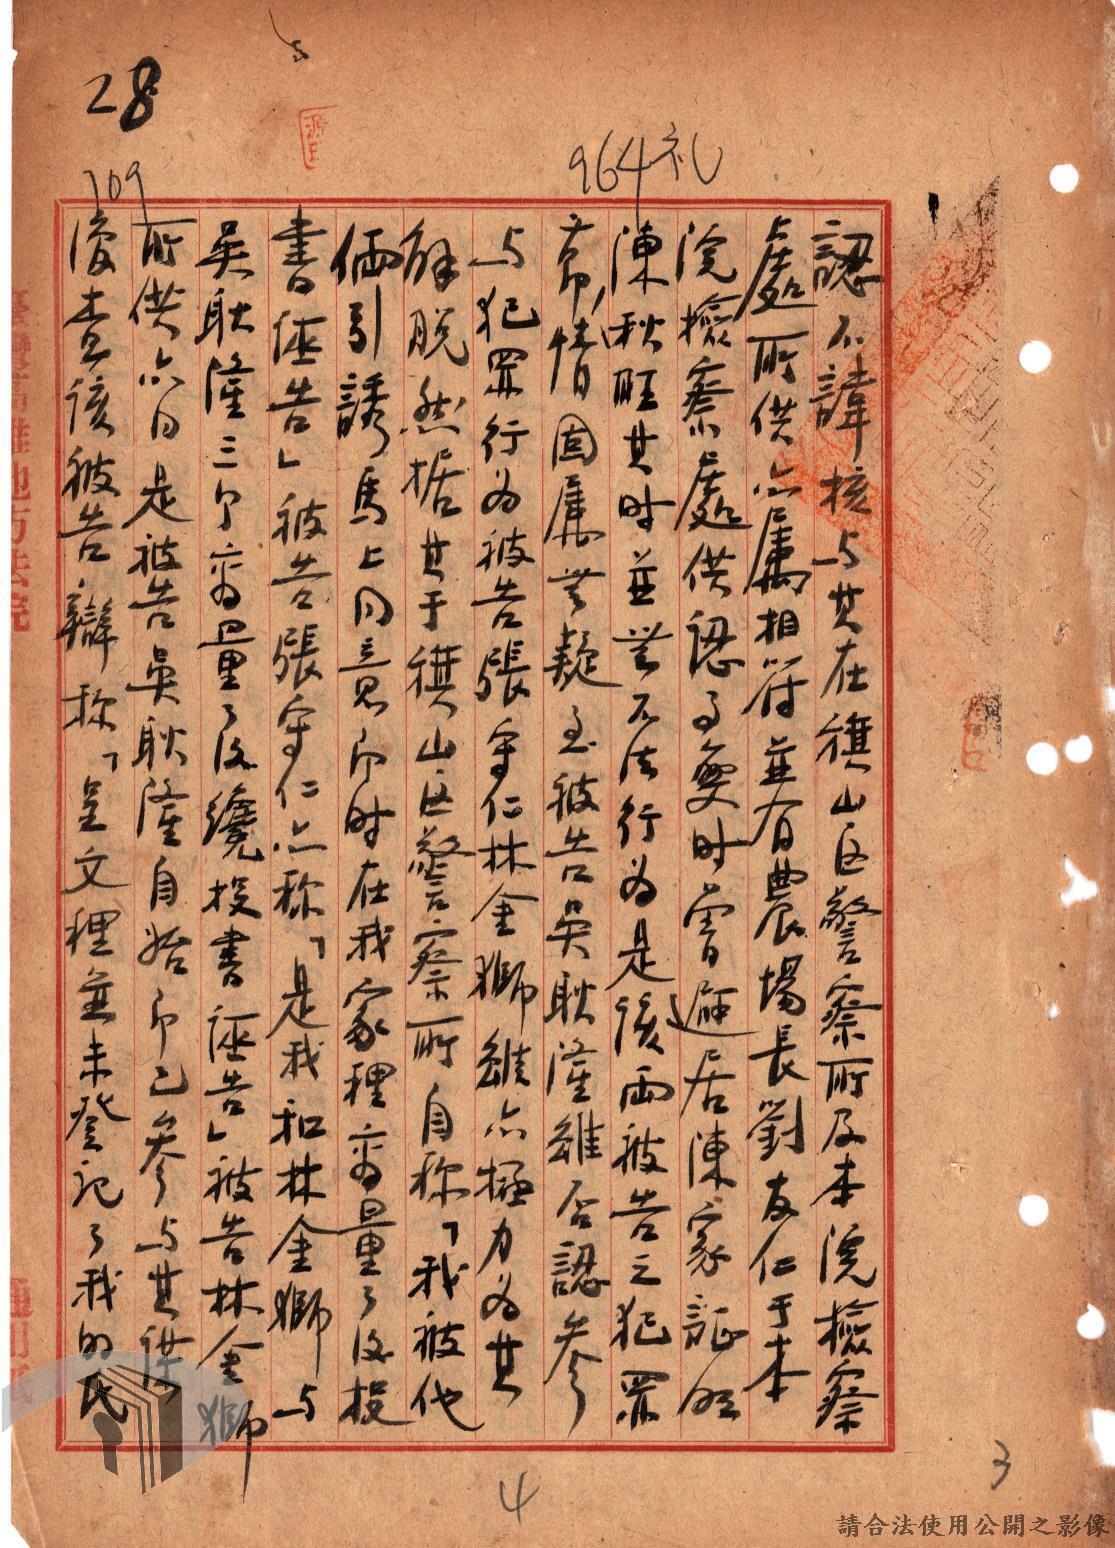 28
964礼
109
認不諱核与其在旗山区警察所及本院檢察
處所供亦属相符並有農場長劉友仁于本
院檢察處供認了事变时曾避居陳家証明
陳秋旺其时並無不法行为是該両被告之犯罪
情固属無疑至被告吳耿隆雖否認参
与犯罪行为被告張守仁林金獅雖亦極力为其
解脱然据其于旗山区警察所自称「我被他
倆引誘馬上同意即时在我家裡商量了後投
書誣告」被告張守仁亦称「是我和林金獅与
吳耿隆三个商量了後纔投書誣告」被告林金獅
所供亦同是被告吳耿隆自始即已参与其謀
復查該被告辯称「呈文裡並未登記了我的民
臺灣高雄地方法院
通用紙
4
3
請合法使用公開之影像